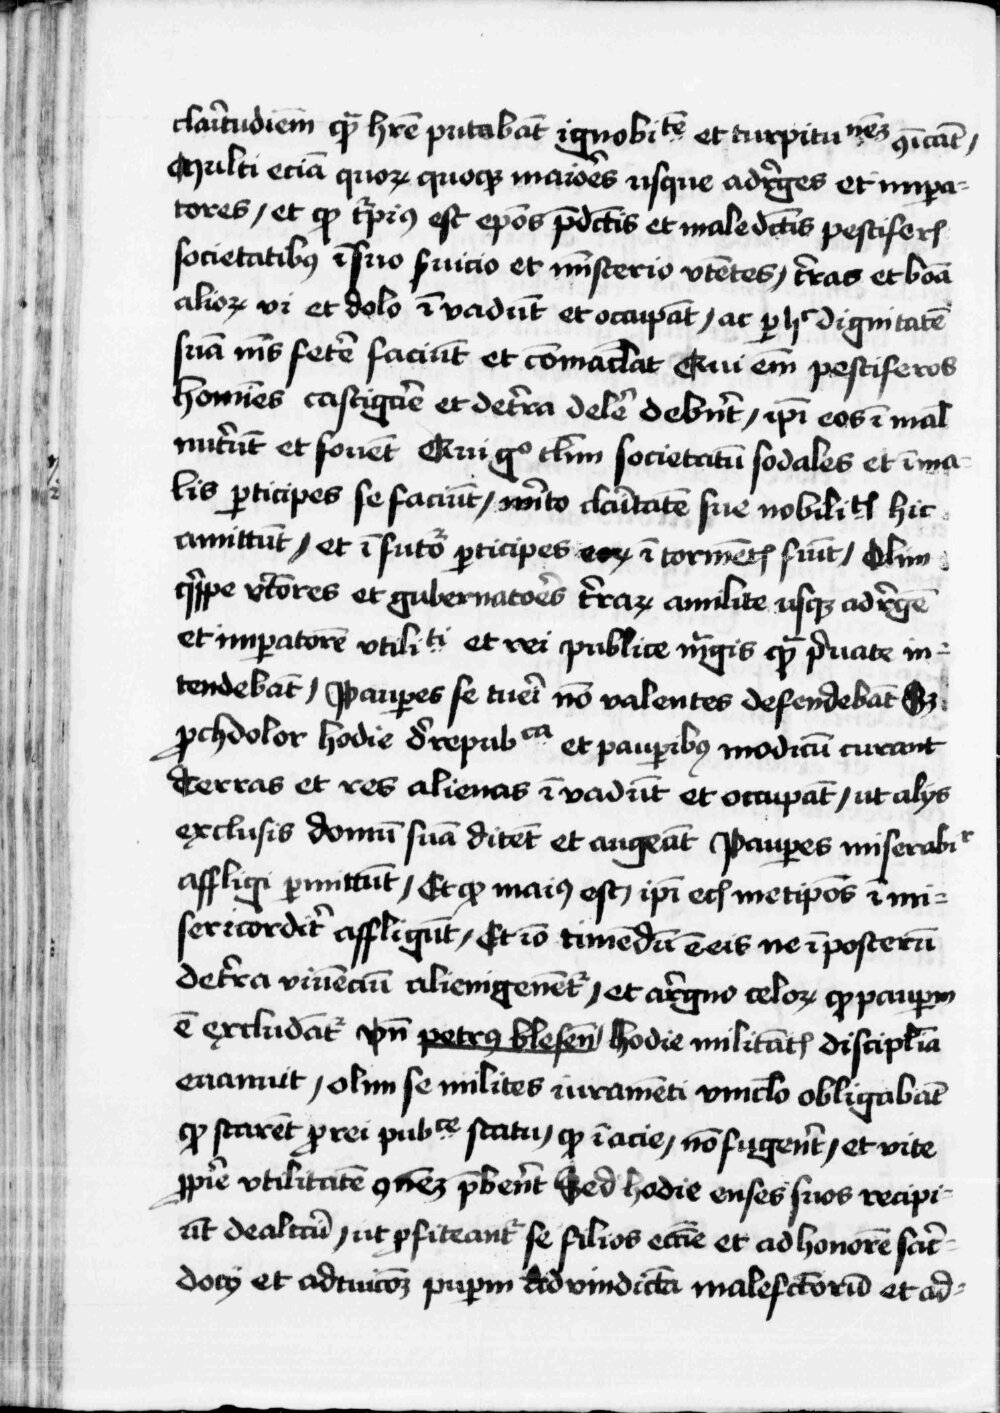 claritudiēm qͣ hr̄e putabāt ignobitē et turpitunēz ꝯicāt /
Multi eciā quoꝝ quoqꝫ maiores usque ad reges et impa-
tores / et ꝙ t̄pius est ep̄os p̄dcīs et maledcīs pestiferꝭ
societatibꝰ ī suo ſuicio et mīsterio vtētes / t̄ras et boā
alioꝝ vi et dolo ī vadūt et occupāt / ac ꝑ hͨ dignitatē
suā fetē faciūt et cōmaclāt Qui em̄ pestiferos
homīes castigare et de t̄ra dele debn̄t / ip̄i eos ī mal
nut̄ūt et fouēt Qui gͦ societatū sodales et ī ma-
lis ꝑticipes se faciūt / m̄ito claritatē sue nobilitꝭ hic
amittūt / et ī futo ꝑticipes eoꝝ ī tormētꝭ fiūt / Olim
qͥppe rc̄tores et gubernatores t̄raꝝ a milite usqꝫ ad regē
et impatorē vtiliti et rei publice mͣgis qͣ p̄uate in-
tendebāt / Pauꝑes se tueri nō valentes defendebāt Sꝫ
ꝓchdolor hodie de repubca et pauꝑibꝰ modicū curant
Terras et res alienas ī vadūt et occupāt / ut alijs
exclusis domū suā ditēt et augeāt Pauꝑes miserabir
affligi ꝑmittūt / Et ꝙ maiꝰ est / ip̄i ecꝭ metip̄os ī mi-
sericordit̄ affligūt / Et iō timēdū ē eis ne ī posterū
de t̄ra viuēciū alienigenēt̄ / et a regno celoꝝ ꝙ pauꝑm
ē excludāt̄ Vn̄ petrus blesen̄ / Hodie militātꝭ discipl̄ia
euanuit / olim se milites iuramēti vincl̄o obligabāt
ꝙ starēt ꝓ rei pubce statu / ꝙ ī acie / nō fugeret / et vite
ꝓp̄ie vtilitatē ꝯnēz p̄bent Sed hodie enses suos recipi-
ūt de altari / ut ꝓfiteant̄ se filios eccīe et ad honorē sac̄-
docij et ad tuicōꝫ puꝑm Ad vindictā malefctorū et ad-